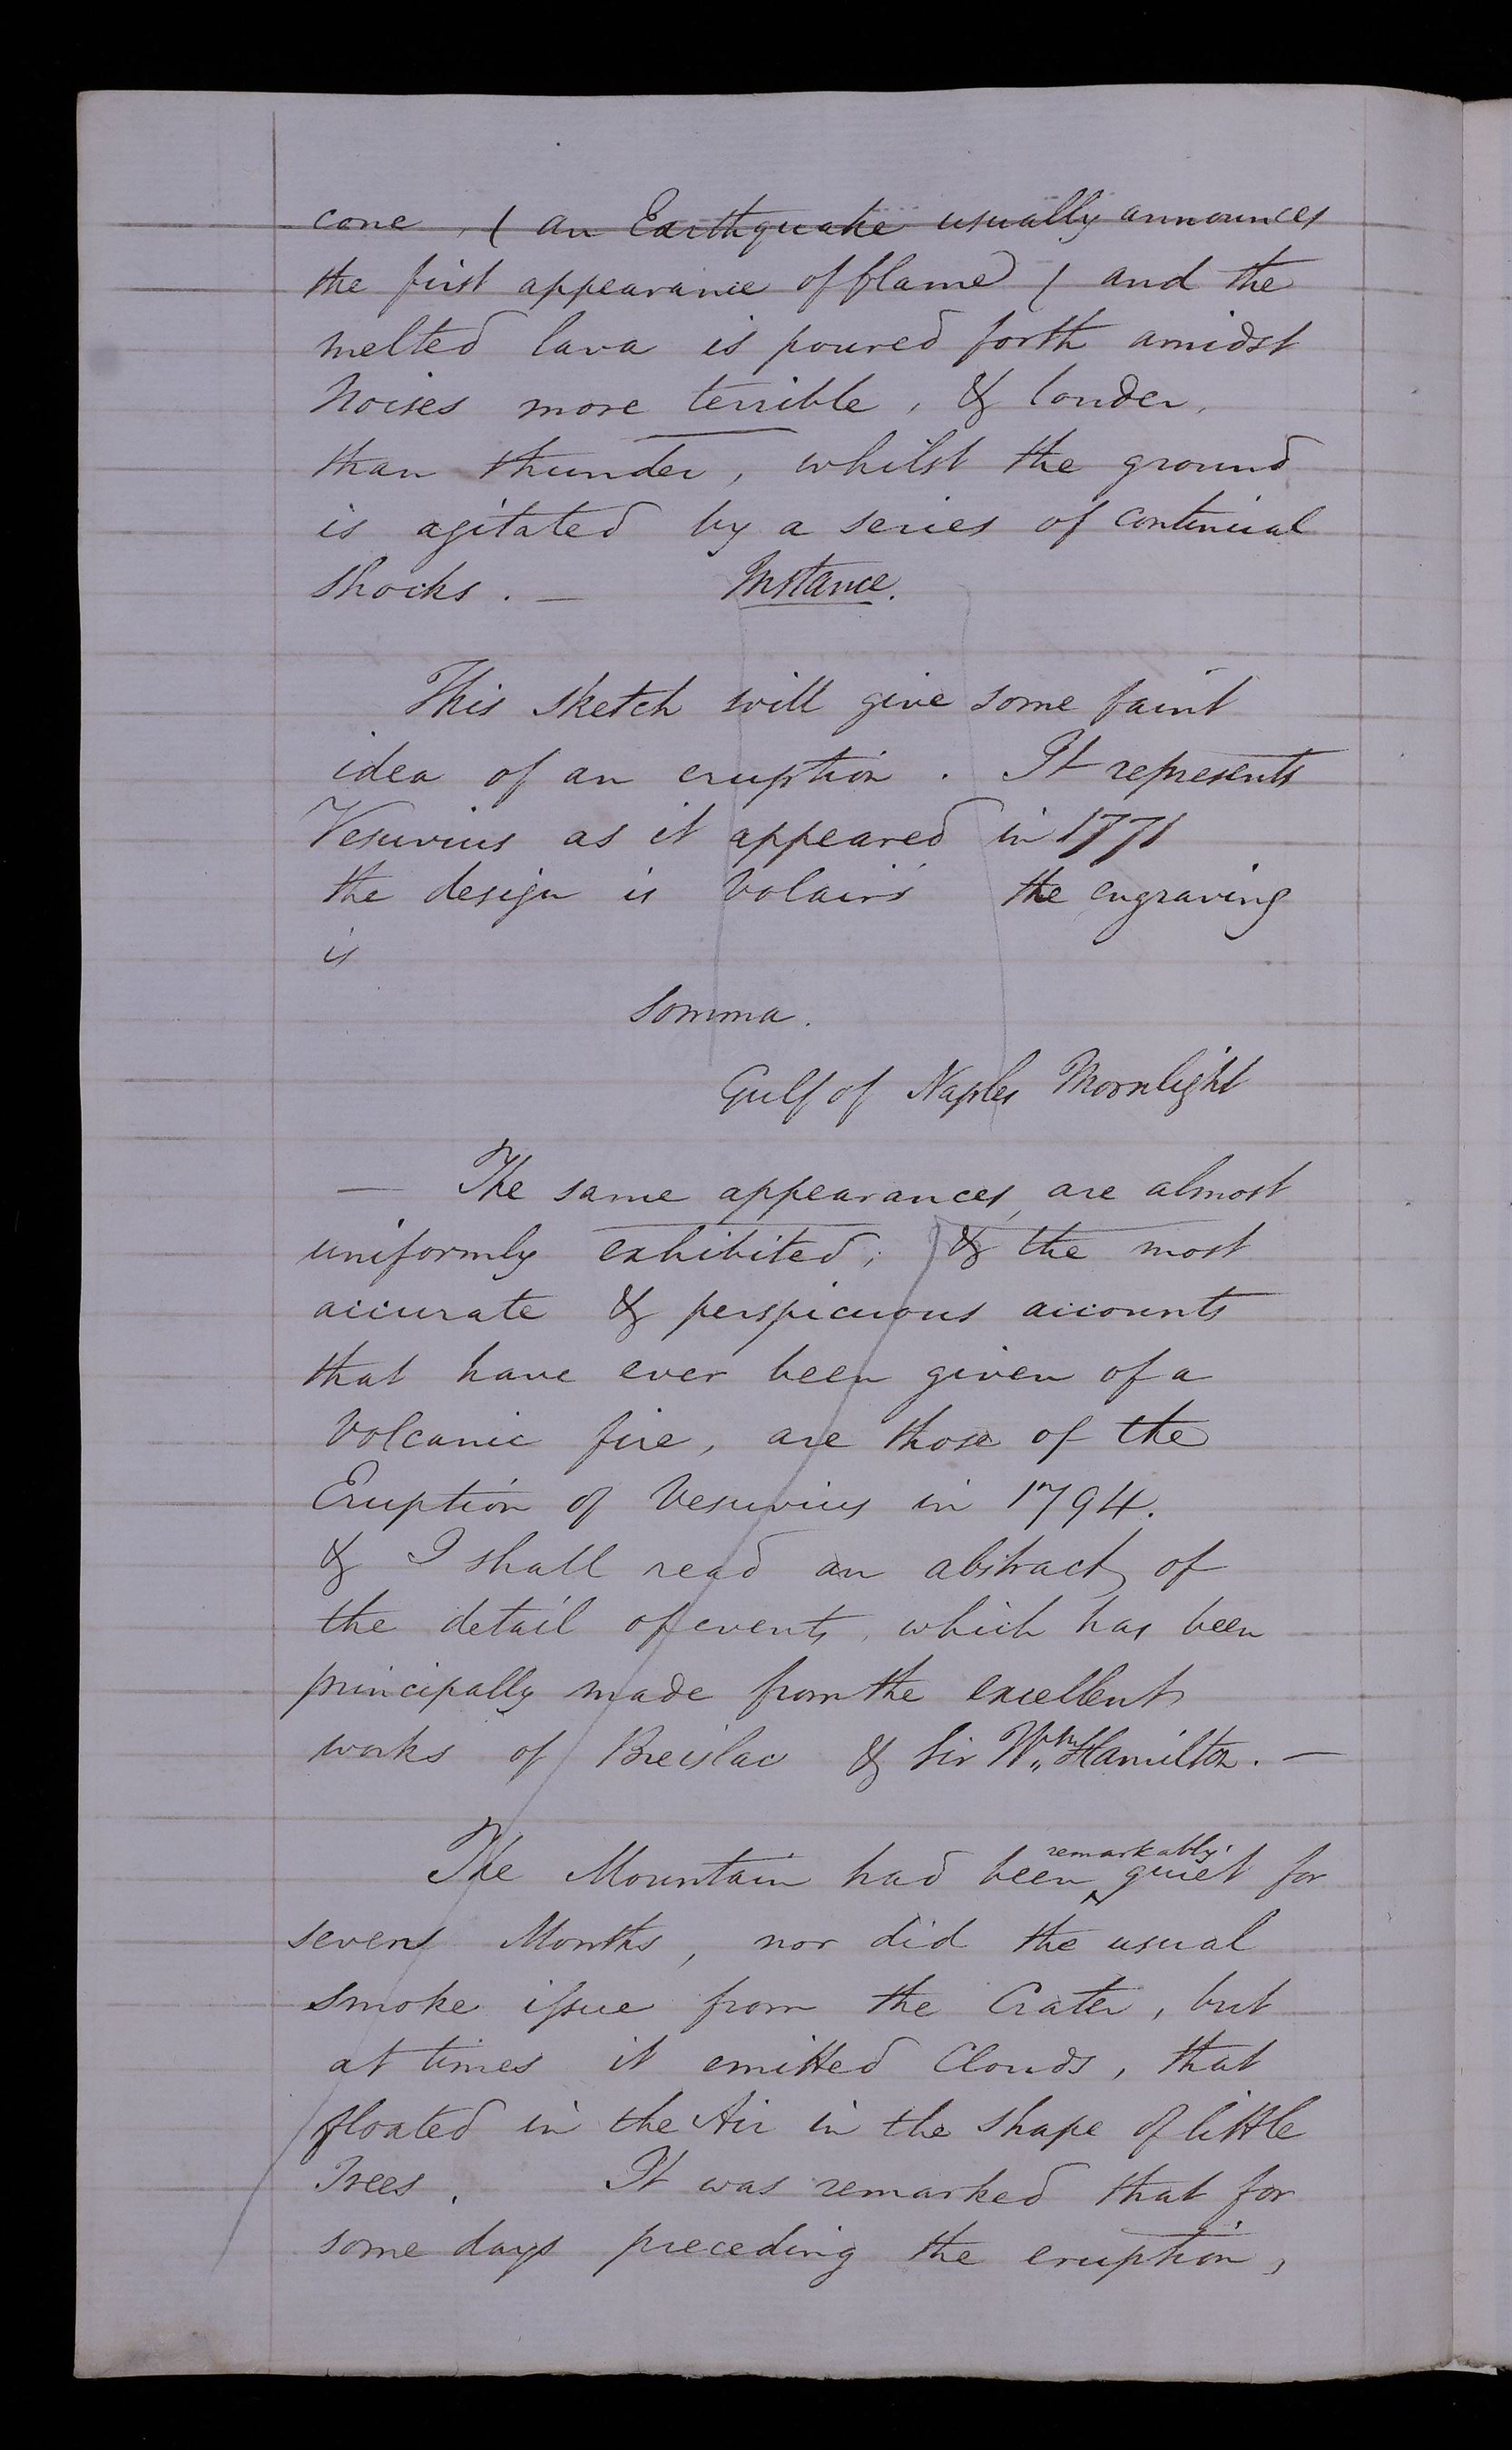 cone, ( an Earthquake usually announces
the first appearance of flame ) and the
melted lava is poured forth amidst
Noises more terrible, & louder,
than thunder, whilst the ground
is agitated by a series of continual
shocks. — Instance.
This sketch will give some faint
idea of an eruption. It represents
Vesuvius as it appeared in 1771
the design is Volair's the engraving
is
Somma.
Gulf of Naples Moonlight
— The same appearances, are almost
uniformly exhibited; & the most
accurate & perspicuous accounts
that have ever been given of a
Volcanic fire, are those of the
Eruption of Vesuvius in 1794.
& I shall read an abstract of
the detail of events, which has been
principally made from the excellent
works of Breislac & Sir Wm Hamilton. —
The Mountain had been remarkably quiet for
seven Months, nor did the usual
smoke issue from the Crater, but
at times it emitted Clouds, that
floated in the Air in the shape of little
Trees. It was remarked that for
some days preceding the eruption,